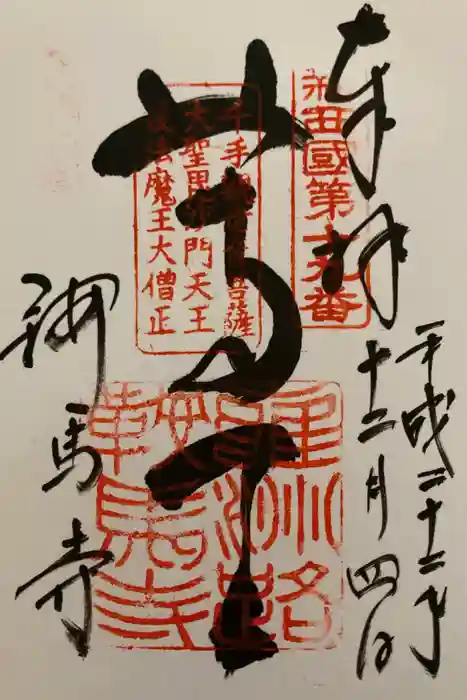 奉拝
平成二十二年
十二月四日
新西國第十九番
尊天
千手觀世音菩薩
大聖毘沙門天王
護法魔王大僧正
雍州路
鞍馬寺
鞍馬寺